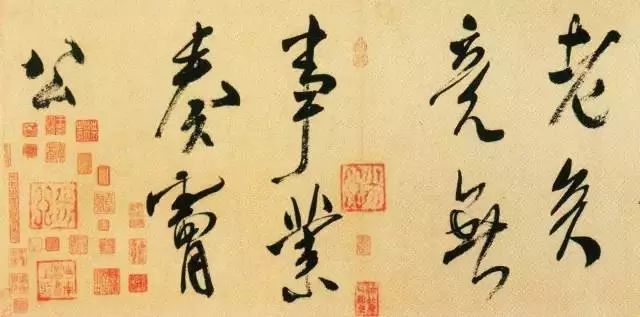 老矣
竟無
事業
奏膚
公